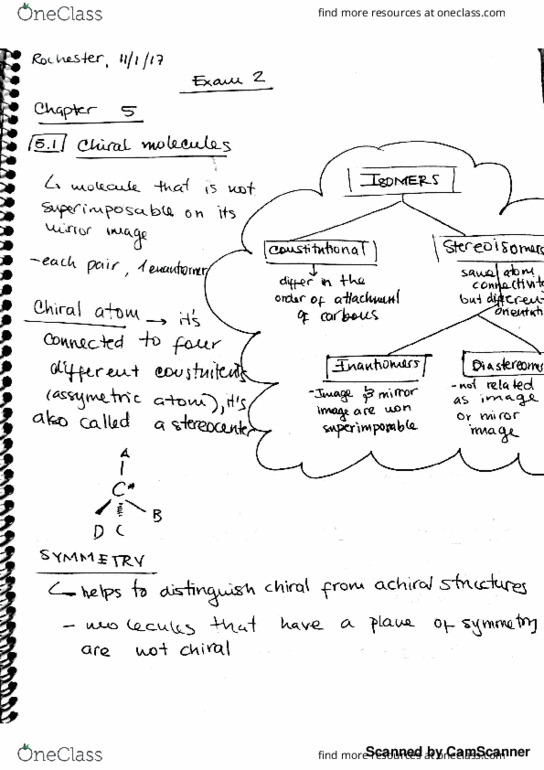 OneClass
find more resources at oneclass.com
Rochester, 11/1/17
Exam 2
Chapter 5
5.1 Chiral molecules
↳ molecule that is not
superimposable on its
mirror image
- each pair, 1 enantiomer
Chiral atom → it's
connected to four
different coustuitents
(assymetric atom), it's
also called a stereocenter
A
C*
B
D C
ISOMERS
Constitutional
differ in the
order of attachment
of carbons
Stereoisomers
same atom
connectivit
but different
orientati
Inantiomers
-Image & mirror
image are non
superimposable
Diastereome
-not related
as image
or mirror
image
SYMMETRY
↳ helps to distinguish chiral from achiral structures
- molecules that have a plane of symmetry
are not chiral
OneClass
find more resources at oneclass.com
Scanned by CamScanner